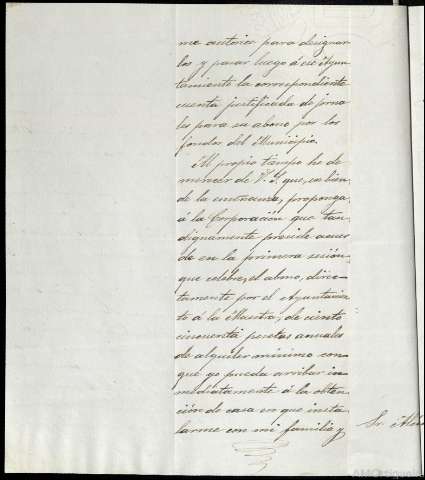 me autorice para designar
los y pasar luego á ese Ayun
tamiento la correspondiente
cuenta justificada de jorna
les para su abono por los
fondos del Municipio.
Al propio tiempo he de
merecer de V. S. que, en bien
de la enseñanza, proponga
á la Corporación que tan
dignamente preside acuer
de en la primera sesión
que celebre, el abono, direc-
tamente por el Ayuntamien
to á la Maestra, de ciento
cincuenta pesetas anuales
de alquiler mínimo con
que yo pueda arribar in
mediatamente á la obten
ción de casa en que insta
larme con mi familia y
Sr. Alca